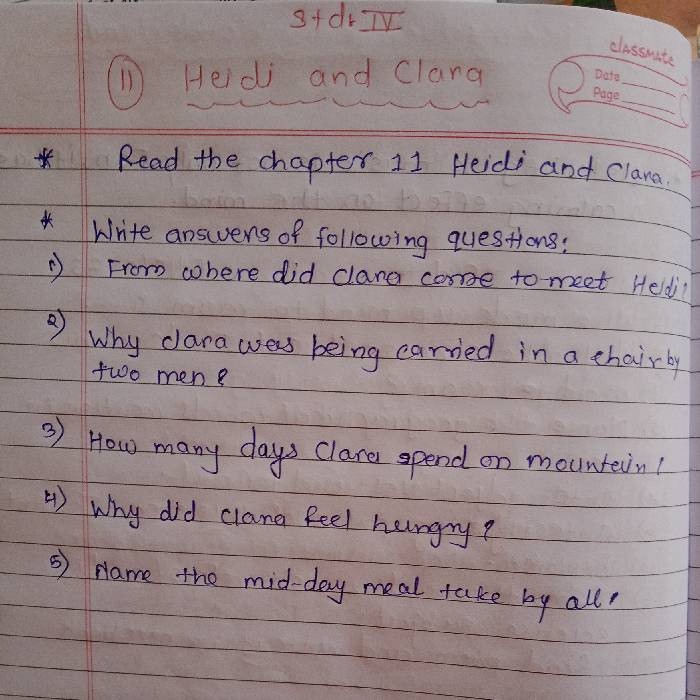 Stdr IV
11) Heidi and Clara
CLASSMATE
Date
Page
* Read the chapter 11 Heidi and Clara.
* Write answers of following questions:
1) From where did clara come to meet Heidi?
2) Why clara was being carried in a chair by
two men?
3) How many days Clara spend on mountain?
4) Why did clara feel hungry?
5) Name the mid-day meal take by all.